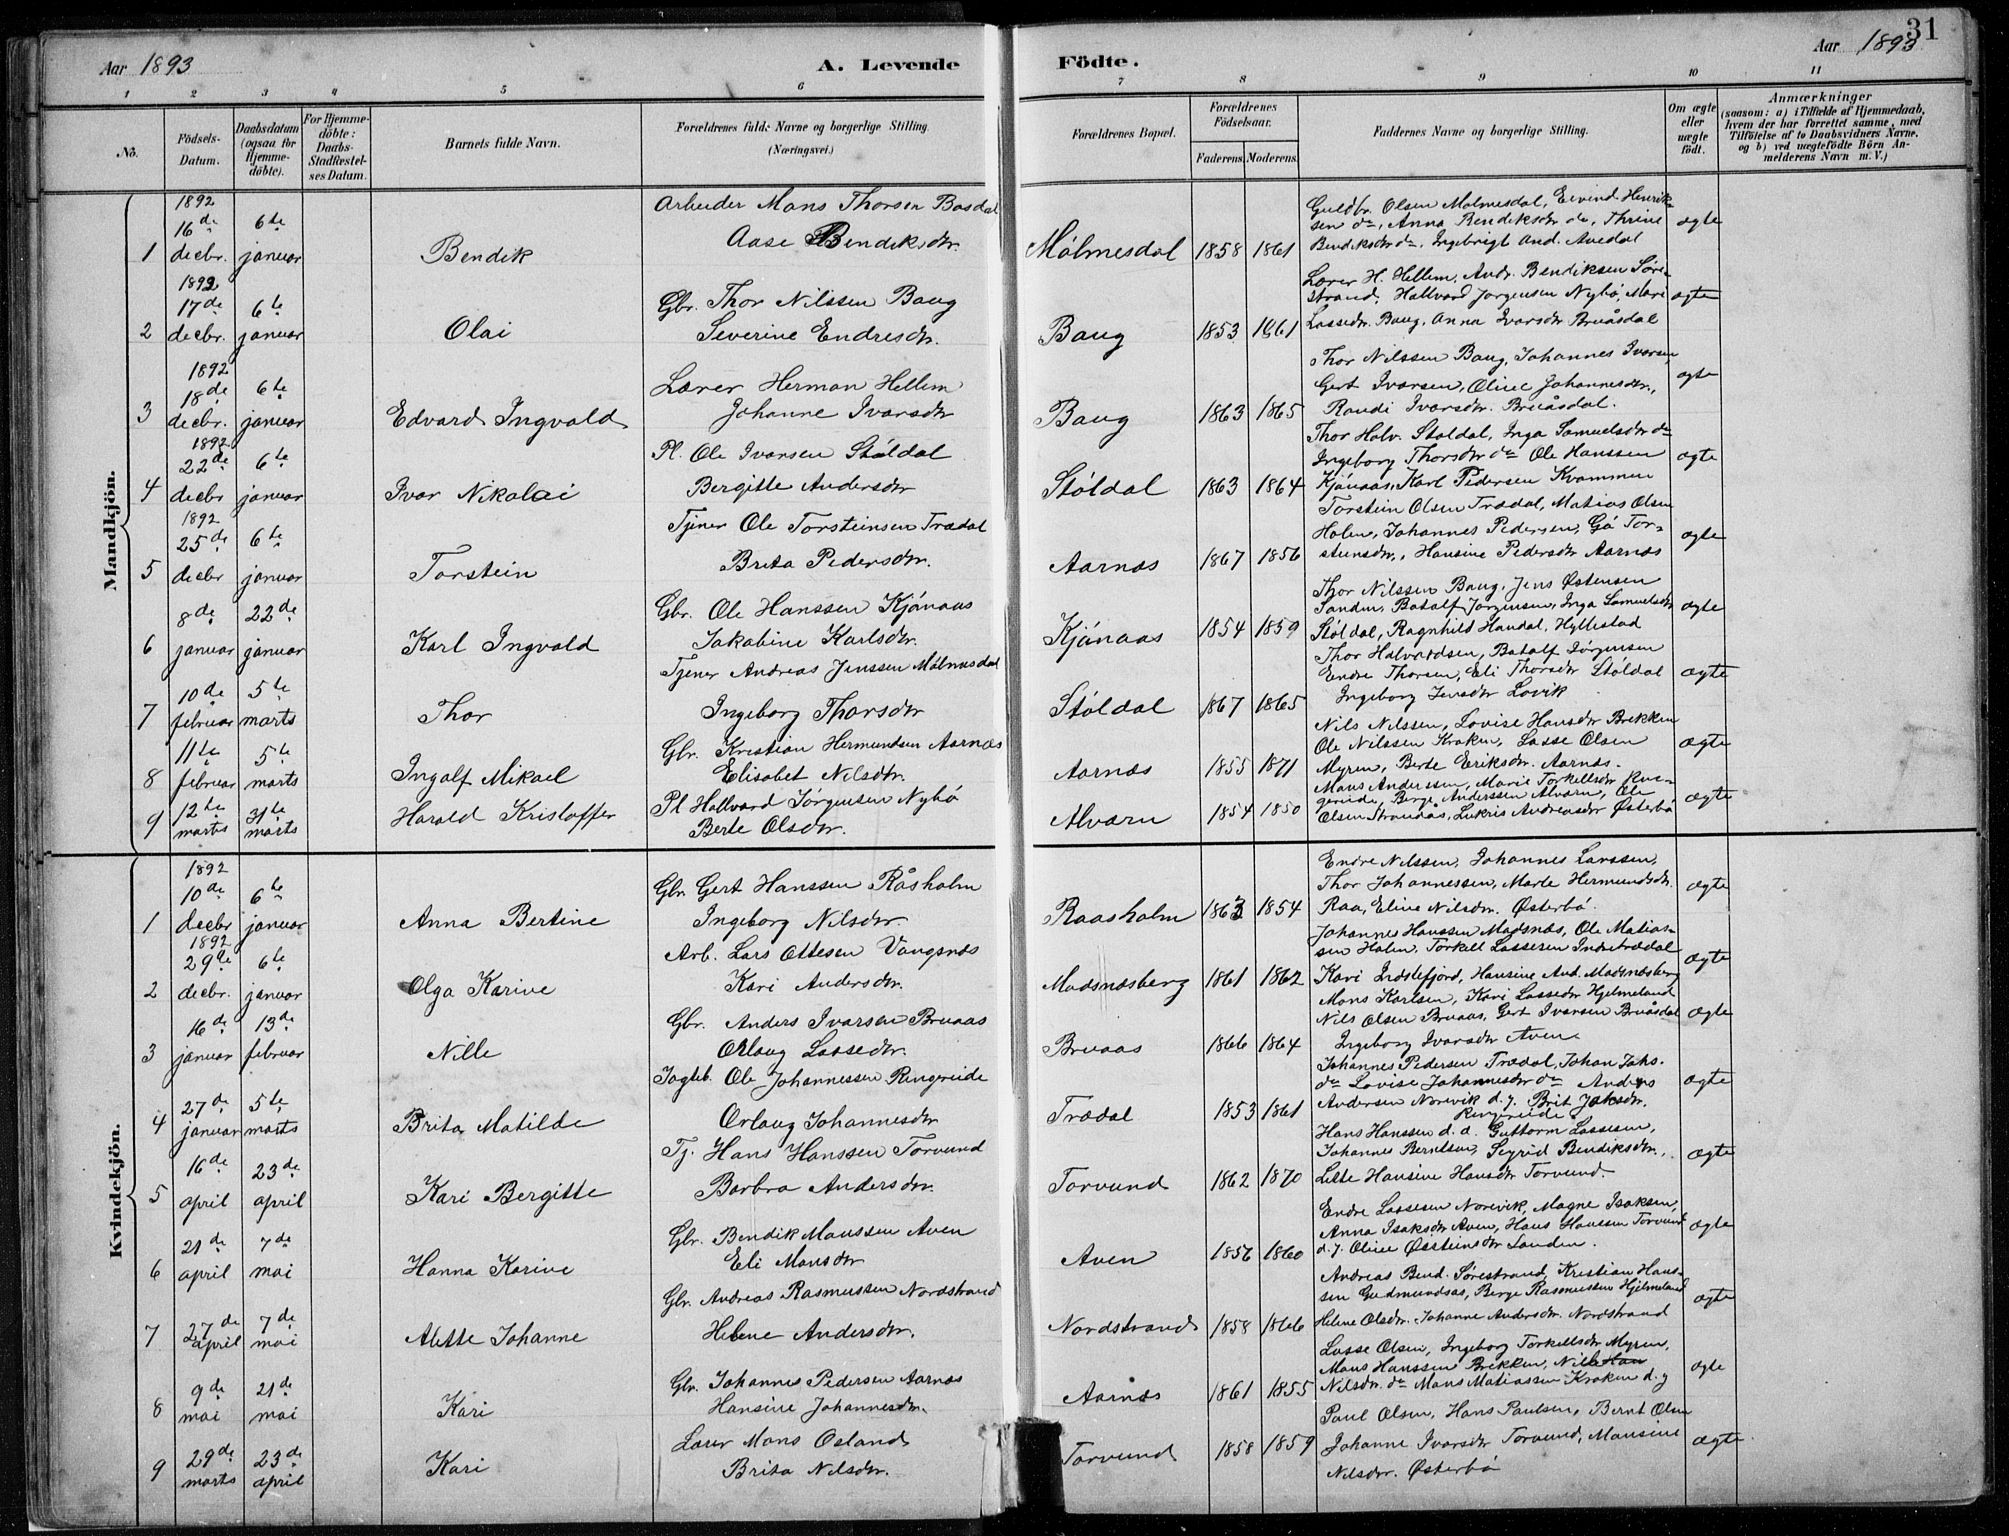 31
Aar 1893
A. Levende Födte.
Aar 1893
1 2 3 4 5 6 7 8 9 10 11
No.
Födsels-Datum.
Daabsdatum (ogsaa for Hjemme-döbte).
For Hjemme-döbte: Daabs-Stadfæstel-ses Datum.
Barnets fulde Navn.
Forældrenes fulde Navne og borgerlige Stilling. (Næringsvei.)
Forældrenes Bopæl.
Forældrenes Födselsaar.
Faderens. Moderens.
Faddernes Navne og borgerlige Stilling.
Om ægte eller uægte födt.
Anmærkninger
(saasom: a) i Tilfælde af Hjemmedaab, hvem der har forrettet samme, med Tilföielse af to Daabsvidners Navne. og b) ved uægtefödte Börn Anmelderens Navn m. V.)
Mandkjön.
1892
1 16de decbr. 6te januar Bendik
Arbeider Mons Thorsen Basdal
Aase Bendiksdr.
Mólmesdal 1858 1861
Guldbr. Olsen Molmesdal, Eivind Henrik-
sen do, Anna Bendiksdr do, Thrine
Bendiksdr do, Ingebrigt And. Avedal
ægte
1892
2 17de decbr. 6te januar Olai
Gbr. Thor Nilssen Baug
Severine Endresdr.
Baug 1853 1861
Lærer H. Hellem, Andr. Bendiksen Söre-
strand, Hallvard Jørgensen Nybö, Mari
Lassedr. Baug, Anna Ivarsdr Bruåsdal
ægte
1892
3 18de decbr. 6te januar Edvard Ingvald
Lærer Herman Hellem
Johanne Ivarsdr
Baug 1863 1865
Thor Nilssen Baug, Johannes Ivarsen
Gert Ivarsen, Oline Johannesdr.,
Randi Ivarsdr. Bruåsdal.
ægte
1892
4 22de decbr 6te januar Ivar Nikolai
Pl. Ole Ivarsen Stóldal
Bergitte Andersdr
Stóldal 1863 1864
Thor Halv. Stoldal, Inga Samuelsdr do
Ingeborg Thorsdr do Ole Hanssen
Kjónaas, Karl Pedersen Kvammen
ægte
1892
5 25de decbr 6te januar Torstein
Tjener Ole Torsteinsen Trædal
Brita Pedersdr.
Aarnæs 1867 1856
Torstein Olsen Trædal, Matias Olsen
Holm, Johannes Pedersen, Gó Tor-
steinsdr., Hansine Pedersdr Aarnæs
ægte
6 8de januar 22de januar Karl Ingvald
Gbr. Ole Hanssen Kjónaas
Jakobine Karlsdr.
Kjónaas 1854 1859
Thor Nilssen Baug, Jens Østensen
Sanden, Batalf Jørgensen, Inga Samuelsdr
Stóldal, Ragnhild Haudal, Hyllestad
ægte
7 10de februar 5te marts Thor
Tjener Andreas Jenssen Mólmesdal
Ingeborg Thorsdr
Stóldal 1867 1865
Thor Halvardsen, Batalf Jørgensen
Endre Thorsen, Eli Thorsdr Stóldal
Ingeborg Jensdr Lovik
ægte
8 11te februar 5te marts Ingolf Mikael
Gbr. Kristian Hermundsen Aarnæs
Elisabet Nilsdtr.
Aarnæs 1855 1871
Nils Nilssen, Lovise Hansdr Brekken
Ole Nilssen Kraken, Lasse Olsen
Myren, Berte Eriksdr. Aarnæs.
ægte
9 12te marts 31te marts Harald Kristoffer
Pl Hallvard Jörgensen Nybó
Berte Olsdr.
Alværn 1854 1850
Mons Anderssen, Marie Torkellsdr Rin-
gereide, Berge Anderssen Alværn, Ole
Olsen Strandås, Lukris Andreasdr Østerbö
ægte
Kvindekjön.
1892
1 10de decbr 6te januar Anna Bertine
Gbr Gert Hanssen Råsholm
Ingeborg Nilsdr.
Raasholm 1863 1854
Endre Nilssen, Johannes Larssen,
Thor Johannessen, Marte Hermundsdr.
Raa, Eline Nilsdr. Østerbö.
ægte
1892
2 29de decbr. 6te januar Olga Karine
Arb. Lars Ottesen Vangsnæs
Kari Andersdr.
Madsnæsberg 1861 1862
Johannes Hanssen Madsnæs, Ole Matias-
sen Holm, Torkell Lassesen Indretrædal
Kari Indstefjord, Hansine And. Madsnæsberg
ægte
3 16de januar 13de februar Nille
Gbr. Anders Ivarsen Bruaas
Orlaug Lassedr.
Bruaas 1866 1864
Mons Karlsen, Kari Lassedr Hjelmeland
Nils Olsen Bruaas, Gert Ivarsen Bruåsdal
Ingeborg Ivarsdr Aven.
ægte
4 27de januar 5te marts Brita Matilde
Ole Johannessen Ringereide
Orlaug Johannesdr
Trædal 1853 1861
Johannes Pedersen Trædal, Johan Johs.
do Lovise Johannesdr do Anders
Andersen Norevik d.y. Brit Jaksdr.
Ringereide.
ægte
5 16de april 23de april Kari Bergitte
Tj. Hans Hanssen Torvund
Barbra Andersdr.
Torvund 1862 1870
Hans Hanssen d.d. Guttorm Lassesen,
Johannes Berntsen, Sigrid Bendiksdr.,
Lette Hansine Hansdr Torvund.
ægte
6 21de april 7de mai Hanna Karine
Gbr. Bendik Monssen Aven
Eli Monsdr
Aven 1856 1860
Endre Lassesen Norevik, Magne Isaksen,
Anna Isaksdr Aven, Hans Hanssen Torvund
d.y. Oline Østeinsdr Sanden.
ægte
7 27de april 7de mai Alette Johanne
Gbr. Andreas Rasmussen Nordstrand
Helene Andersdr.
Nordstrand 1858 1866
Andreas Bend. Sörestrand, Kristian Hans-
sen Gudmundsås, Berge Rasmussen Hjelmeland
Helene Olsdr. Johanne Andersdr. Nordstrand
ægte
8 9de mai 21de mai Kari
Gbr. Johannes Pedersen Aarnæs
Hansine Johannesdr.
Aarnæs 1861 1855
Lasse Olsen, Ingeborg Torkellsdr Myren,
Mons Hanssen Brekken, Nille Han
Nilsdr. do Mons Matiassen Kraken d.y
ægte
9 29de marts 23de april Kari
Lærer Mons Osland
Brita Nilsdr.
Torvund 1858 1859
Paul Olsen, Hans Paulsen, Bernt Olsen
Johanne Ivarsdr Torvund, Mansine
Nilsdr. Østerbö
ægte